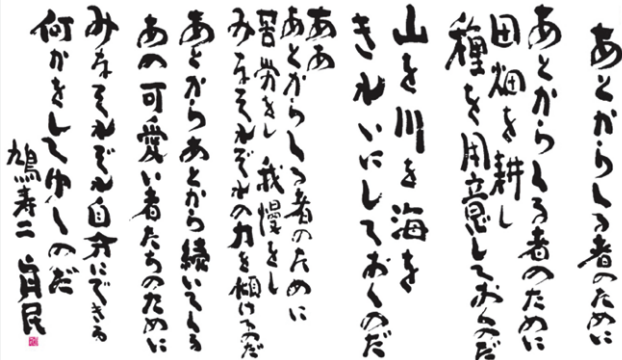 あとからくる者のために
あとからくる者のために
田畑を耕し
種を用意しておくのだ
山を川を海を
きれいにしておくのだ
ああ
あとからくる者のために
苦労をし 我慢をし
みなそれぞれの力を傾けるのだ
あとからあとから続いてくる
あの可愛い者たちのために
みなそれぞれ自分にできる
何かをしてゆくのだ
鳩寿二 真民